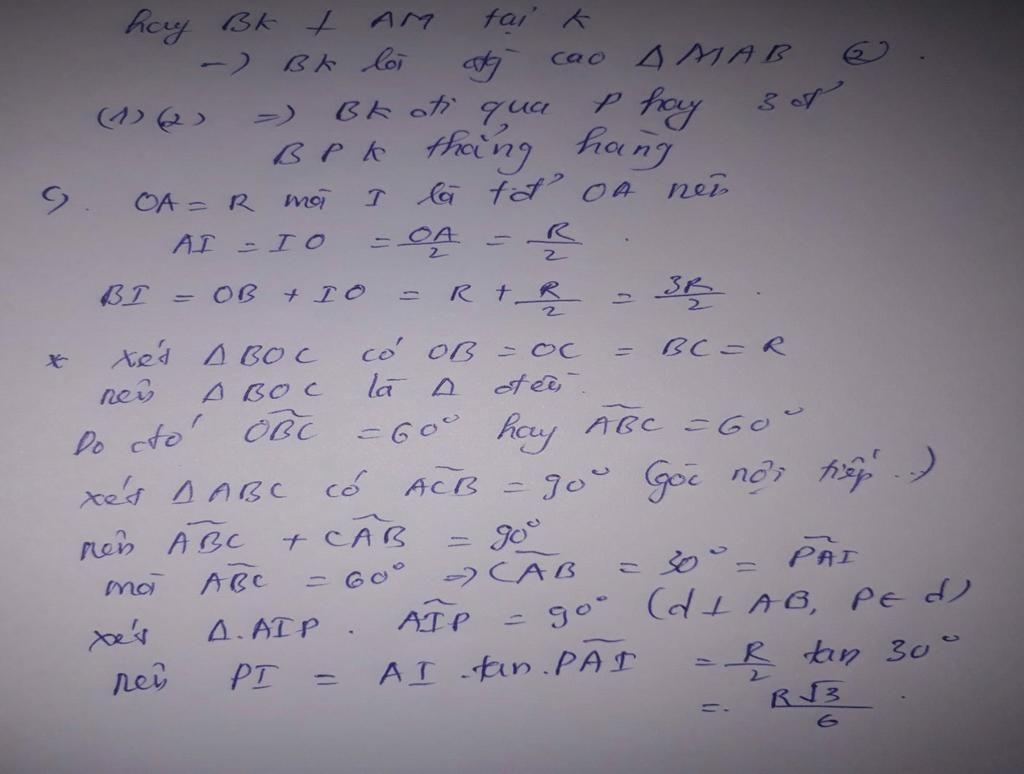 hay BK ⊥ AM tại K
→ BK là đg cao Δ MAB (2).
(1)(2) => BK đi qua P hay 3 đ'
B P K thẳng hàng
c). OA = R mà I là tđ' OA nên
AI = IO = OA/2 = R/2.
BI = OB + IO = R + R/2 = 3R/2.
* xét Δ BOC có OB = OC = BC = R
nên Δ BOC là Δ đều.
Do đó OBC = 60° hay ABC = 60°
xét Δ ABC có ACB = 90° (góc nội tiếp..)
nên ABC + CAB = 90°
mà ABC = 60° => CAB = 30° = PAI
xét Δ.AIP. AIP = 90° (d ⊥ AB, P ∈ d)
nên PI = AI.tan.PAI = R/2 tan 30°
=. R√3/6.